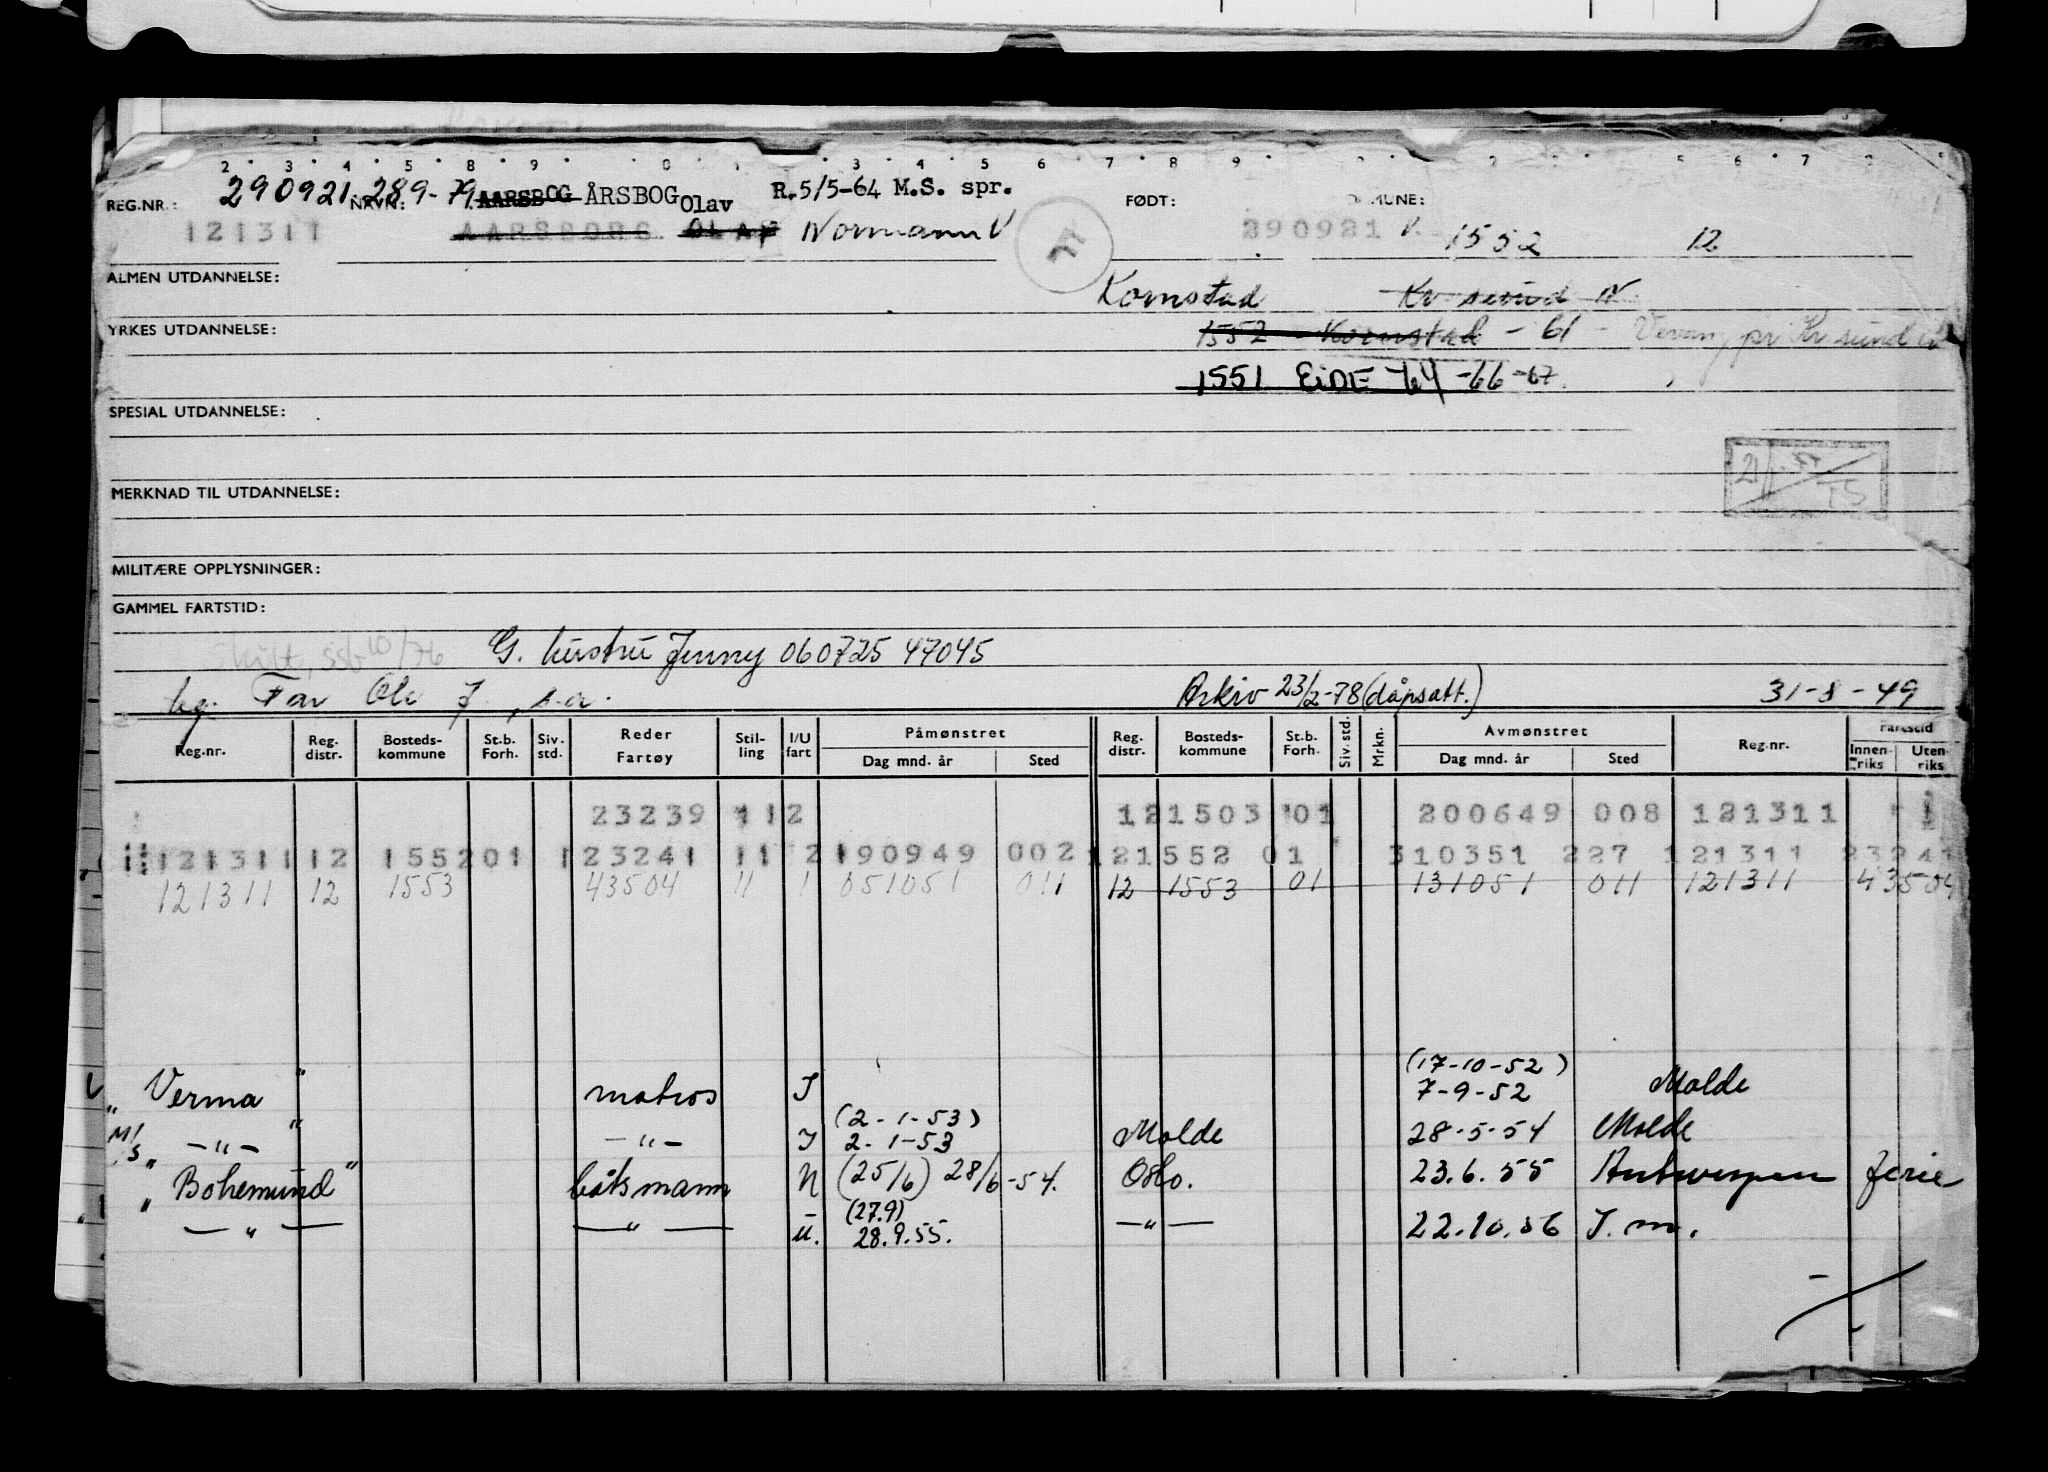 2 3 4 5 8 9 0 3 4 5 6 7 8 9 2 5 6 7
REG.NR.: 290921 289-79 NAVN: AARSBOG ÅRSBOG Olav R.5/5-64 M.S. spr. FØDT: MUNE:
121311 AARSBORG OLAF Normann V 77 290921 1552 12
ALMEN UTDANNELSE: Kornstad Kr sund N
YRKES UTDANNELSE: 1552 Kornstad - 61 - Vevang pr Kr sund N
1551 EiDE 64 -66 -67
SPESIAL UTDANNELSE:
MERKNAD TIL UTDANNELSE:
MILITÆRE OPPLYSNINGER:
GAMMEL FARTSTID:
10/76 G. hustru Jenny 060725 47045
Far Ole J, s.a. Arkiv 23/2-78 (dåpsatt.) 31-8-49
Reg.nr. Reg. distr. Bosteds-kommune St.b. Forh. Siv. std. Reder Fartøy Stil-ling I/U fart Påmønstret Dag mnd. år Sted Reg. distr. Bosteds-kommune St.b. Forh. Siv. std. Mrkn. Avmønstret Dag mnd. år Sted Reg.nr. Fartstid Innen-riks Uten-riks
23239 11 2 121503 01 200649 008 121311 1
121311 12 1552 01 1 23241 11 2 190949 002 121552 01 310351 227 121311 23241
121311 12 1553 43504 11 1 051051 011 12 1553 01 131051 011 121311 43504
(17-10-52)
" Verma " matros I 7-9-52 Molde
(2-1-53)
M/S " -"- " -"- I 2-1-53 Molde 28-5-54 Molde
" Bohemund " båtsmann N (25/6) 28/6-54. Oslo. 23.6.55 Antwerpen ferie
(27.9)
-"- -"- U. 28.9.55. -"- 22.10.56 I.m.